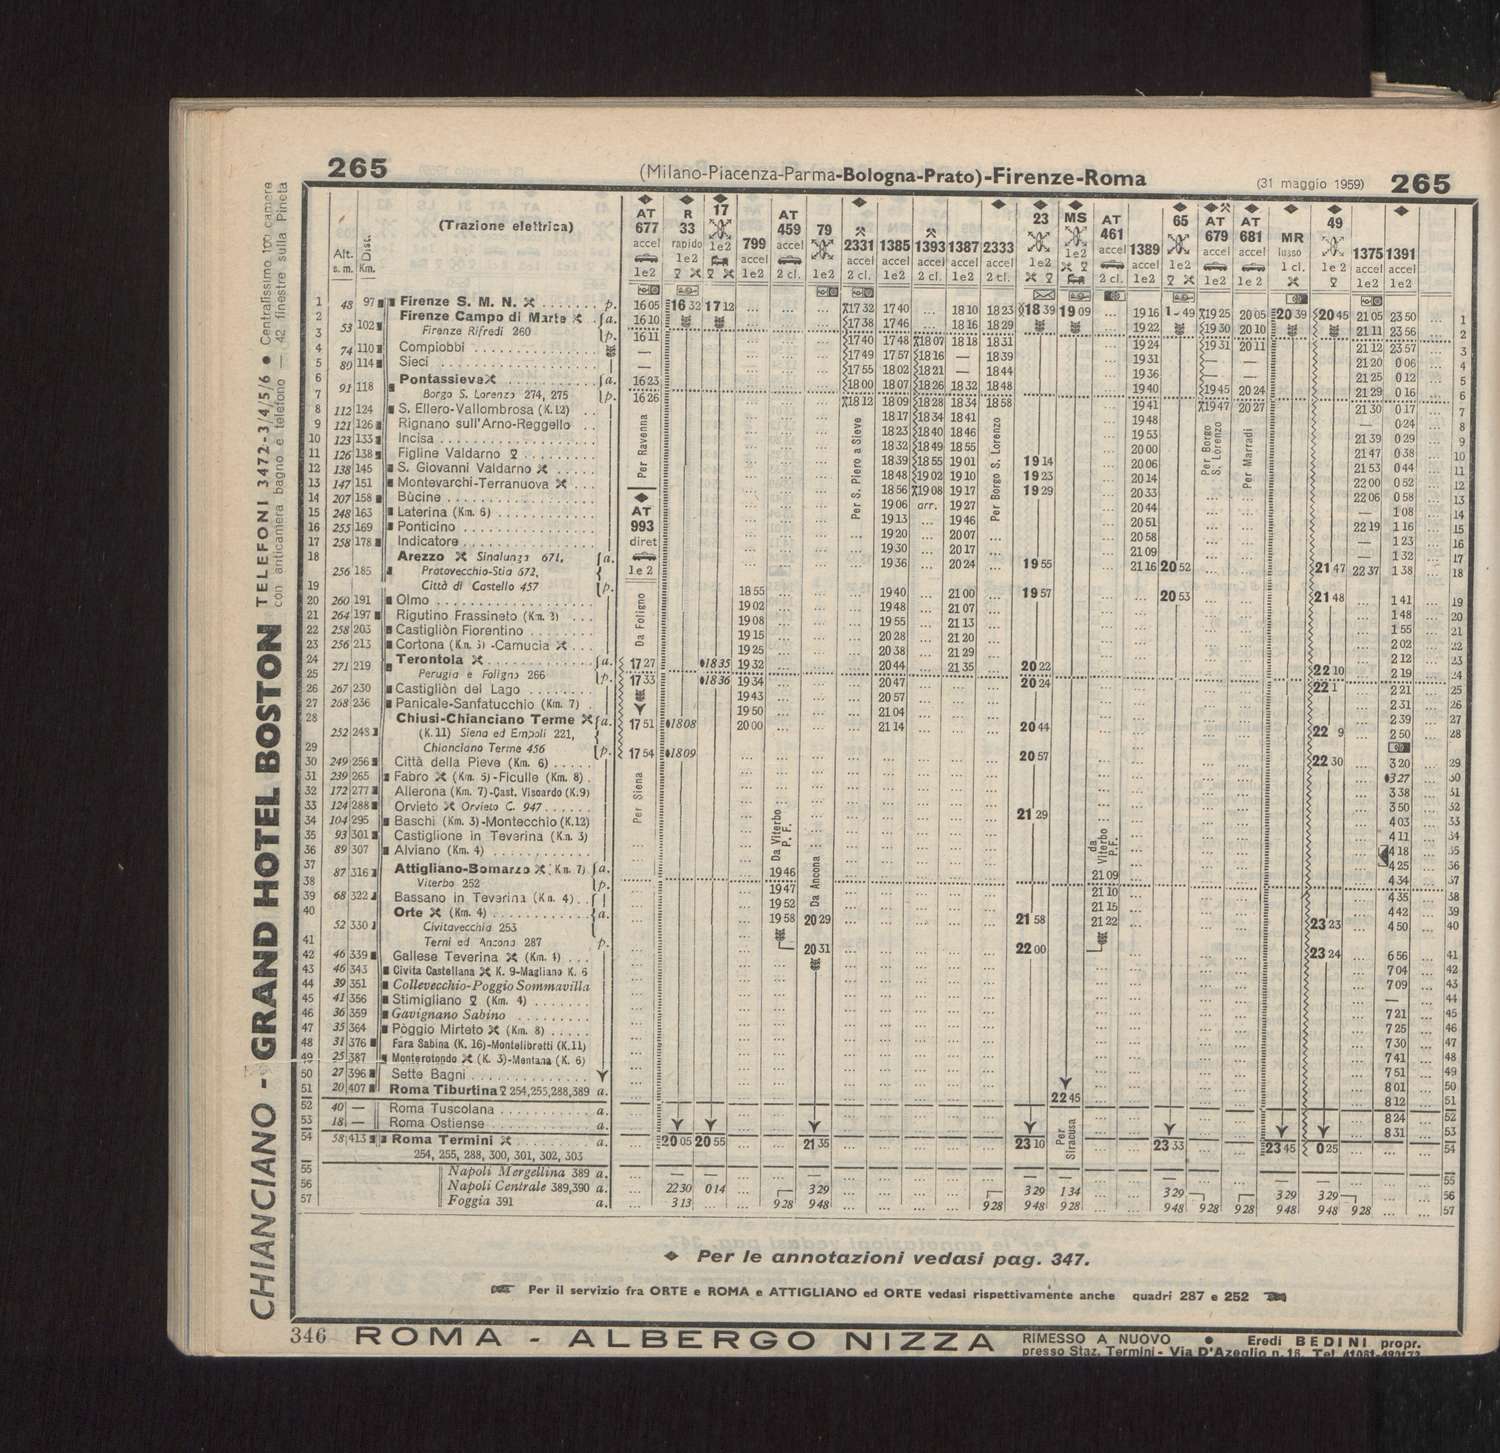 265
(Milano-Piacenza-Parma-Bologna-Prato)-Firenze-Roma
(31 maggio 1959)
265
(Trazione elettrica)
Alt. s. m.
Dist. Km.
AT 677 accel 1e2
R 33 rapido 1e2
17 1e2
799 accel 1e2
AT 459 accel 2 cl.
79 1e2
2331 accel 2 cl.
1385 accel 1e2
1393 accel 2 cl.
1387 accel 1e2
2333 accel 2 cl.
23 1e2
MS 1e2
AT 461 accel 2 cl.
1389 accel 1e2
65 1e2
AT 679 accel 1e2
AT 681 accel 1e2
MR lusso 1 cl.
49 1e2
1375 accel 1e2
1391 accel 1e2
1 48 97 Firenze S. M. N. p. 16 05 16 32 17 12 17 32 17 40 18 10 18 23 18 39 19 09 19 16 19 25 20 05 20 39 20 45 21 05 23 50 1
2 Firenze Campo di Marte a. 16 10 17 38 17 46 18 16 18 29 19 22 19 30 20 10 21 11 23 56 2
3 53 102 Firenze Rifredi 260 p. 16 11 17 40 17 48 18 07 18 18 18 31 19 24 19 31 20 11 21 12 23 57 3
4 74 110 Compiobbi — 17 49 17 57 18 16 — 18 39 19 31 — — 21 20 0 06 4
5 80 114 Sieci — 17 55 18 02 18 21 — 18 44 19 36 — — 21 25 0 12 5
6 91 118 Pontassieve a. 16 23 18 00 18 07 18 26 18 32 18 48 19 40 19 45 20 24 21 29 0 16 6
7 Borgo S. Lorenzo 274, 275 p. 16 26 18 12 18 09 18 28 18 34 18 58 19 41 19 47 20 27 21 30 0 17 7
8 112 124 S. Ellero-Vallombrosa (K. 12) 18 17 18 34 18 41 19 48 — 0 24 8
9 121 126 Rignano sull'Arno-Reggello 18 23 18 40 18 46 19 53 21 39 0 29 9
10 123 133 Incisa 18 32 18 49 18 55 20 00 21 47 0 38 10
11 126 138 Figline Valdarno 18 39 18 55 19 01 19 14 20 06 21 53 0 44 11
12 138 145 S. Giovanni Valdarno 18 48 19 02 19 10 19 23 20 14 22 00 0 52 12
13 147 151 Montevarchi-Terranuova 18 56 19 08 19 17 19 29 20 33 22 06 0 58 13
14 207 158 Bùcine 19 06 arr. 19 27 20 44 — 1 08 14
15 248 163 Laterina (Km. 6) 19 13 19 46 20 51 22 19 1 16 15
16 255 169 Ponticino 19 20 20 07 20 58 — 1 23 16
17 258 178 Indicatore 19 30 20 17 21 09 — 1 32 17
18 Arezzo Sinalunga 671, a. 19 36 20 24 19 55 21 16 20 52 21 47 22 37 1 38 18
256 185 Pratovecchio-Stia 672,
19 Città di Castello 457 p. 18 55 19 40 21 00 19 57 20 53 21 48 1 41 19
20 260 191 Olmo 19 02 19 48 21 07 1 48 20
21 264 197 Rigutino Frassineto (Km. 3) 19 08 19 55 21 13 1 55 21
22 258 203 Castigliòn Fiorentino 19 15 20 28 21 20 2 02 22
23 256 213 Cortona (Km. 3) -Camucia 19 25 20 38 21 29 2 12 23
24 271 219 Terontola a. 17 27 18 35 19 32 20 44 21 35 20 22 22 10 2 19 24
25 Perugia e Foligno 266 p. 17 33 18 36 19 34 20 47 20 24 2 21 25
26 267 230 Castigliòn del Lago 19 43 20 57 2 31 26
27 268 236 Panicale-Sanfatucchio (Km. 7) 19 50 21 04 2 39 27
28 Chiusi-Chianciano Terme a. 17 51 18 08 20 00 21 14 20 44 2 50 28
252 248 (K. 11) Siena ed Empoli 221,
29 Chianciano Terme 456 p. 17 54 18 09 20 57 22 30 3 20 29
30 249 256 Città della Pieve (Km. 6) 3 27 30
31 239 265 Fabro (Km. 5)-Ficulle (Km. 8) 3 38 31
32 172 277 Allerona (Km. 7)-Cast. Viscardo (K. 9) 3 50 32
33 124 288 Orvieto Orvieto C. 947 21 29 4 03 33
34 104 295 Baschi (Km. 3)-Montecchio (K. 12) 4 11 34
35 93 301 Castiglione in Teverina (Km. 3) 4 18 35
36 89 307 Alviano (Km. 4) 4 25 36
37 87 316 Attigliano-Bomarzo (Km. 7) a. 19 46 21 09 4 34 37
38 Viterbo 252 p. 19 47 21 10 4 35 38
39 68 322 Bassano in Teverina (Km. 4) 19 52 21 15 4 42 39
40 Orte (Km. 4) a. 19 58 20 29 21 58 21 22 23 23 4 50 40
52 330 Civitavecchia 253
41 Terni ed Ancona 287 p. 20 31 22 00 23 24 6 56 41
42 46 339 Gallese Teverina (Km. 4) 7 04 42
43 46 343 Civita Castellana K. 9-Magliano K. 6 7 09 43
44 39 351 Collevecchio-Poggio Sommavilla — 44
45 41 356 Stimigliano (Km. 4) 7 21 45
46 36 359 Gavignano Sabino 7 25 46
47 35 364 Pòggio Mirteto (Km. 8) 7 30 47
48 31 376 Fara Sabina (K. 16)-Montelibretti (K. 11) 7 41 48
49 25 387 Monterotondo (K. 3)-Mentana (K. 6) 7 51 49
50 27 396 Sette Bagni 8 01 50
51 20 407 Roma Tiburtina 254, 255, 288, 389 a. 22 45 8 12 51
52 40 — Roma Tuscolana a. 8 24 52
53 18 — Roma Ostiense a. 8 31 53
54 58 413 Roma Termini a. 20 05 20 55 21 35 23 10 23 33 23 45 0 25 54
254, 255, 288, 300, 301, 302, 303
55 Napoli Mergellina 389 a. 55
56 Napoli Centrale 389,390 a. 22 30 0 14 3 29 3 29 1 34 3 29 3 29 3 29 56
57 Foggia 391 a. 3 13 9 28 9 48 9 28 9 48 9 28 9 48 9 28 9 28 9 48 9 48 9 28 57
Per Ravenna
AT 993 diret 1e2
Da Foligno
Per Siena
Da Viterbo P. F.
Da Ancona
Per S. Piero a Sieve
Per Borgo S. Lorenzo
da Viterbo P.F.
Per Siracusa
Per Borgo S. Lorenzo
Per Marradi
Per le annotazioni vedasi pag. 347.
Per il servizio fra ORTE e ROMA e ATTIGLIANO ed ORTE vedasi rispettivamente anche quadri 287 e 252
CHIANCIANO - GRAND HOTEL BOSTON TELEFONI 3472-3/4/5/6 ● Centralissimo 100 camere
con anticamera bagno e telefono — 42 finestre sulla Pineta
346 ROMA - ALBERGO NIZZA RIMESSO A NUOVO ● Eredi BEDINI propr.
presso Staz. Termini - Via D'Azeglio n. 16.